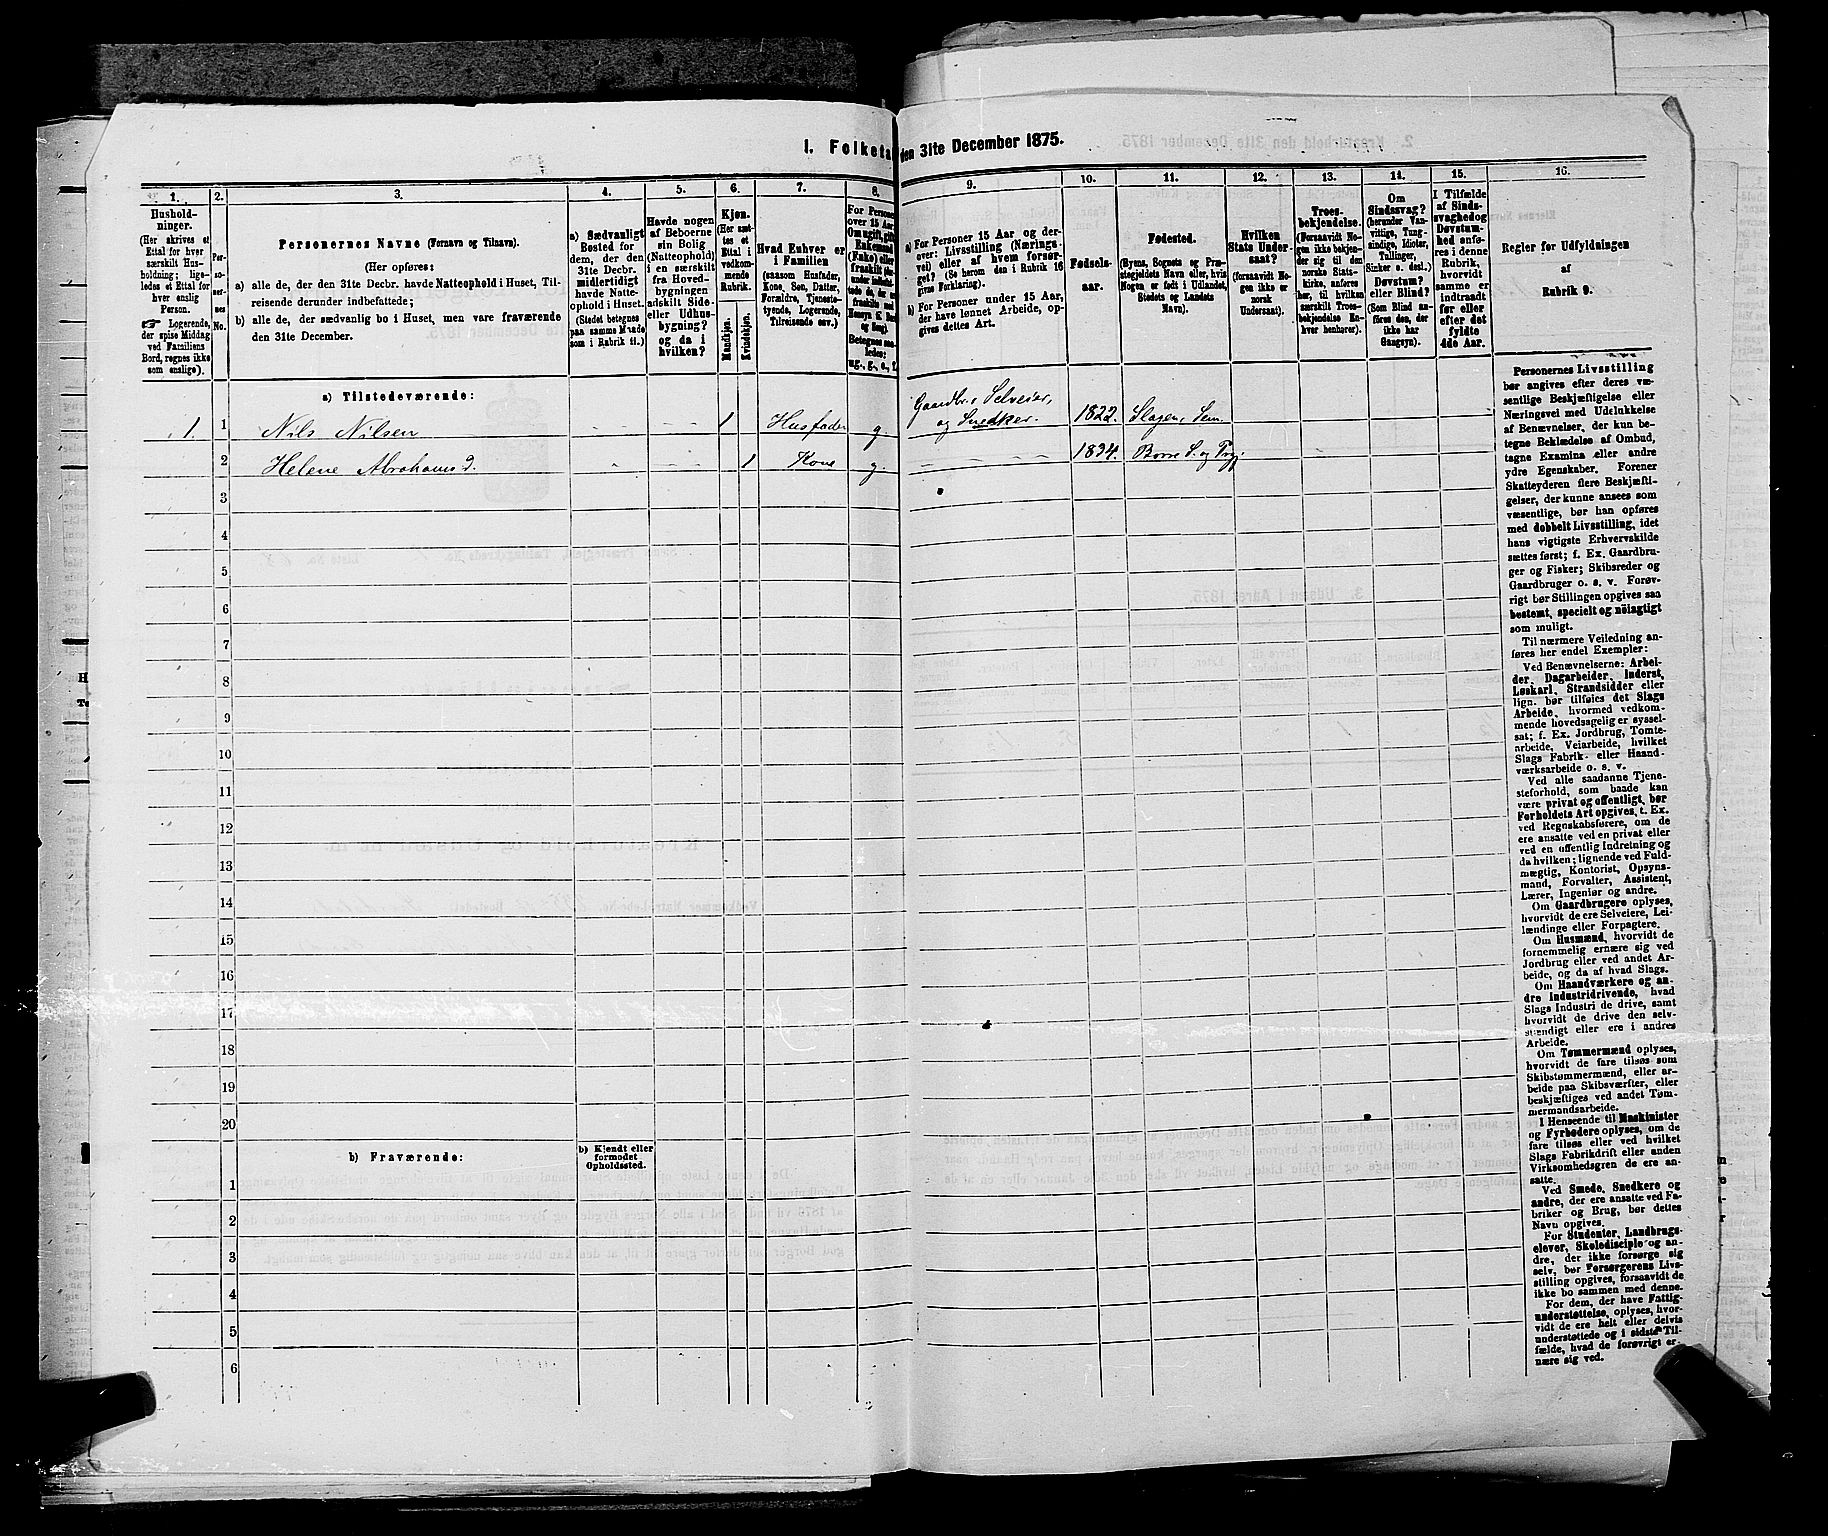 1. Folketæ
den 31te December 1875.
1.
Hushold-
ninger.
(Her skrives et
Ettal for hver
særskilt Hus-
holdning; lige-
ledes et Ettal for
hver enslig
Person.
☞ Logerende,
der spise Middag
ved Familiens
Bord, regnes ikke
som enslige).
2.
Per-
so-
ner-
nes
No.
3.
Personernes Navne (Fornavn og Tilnavn).
(Her opføres:
a) alle de, der den 31te Decbr. havde Natteophold i Huset, Til-
reisende derunder indbefattede;
b) alle de, der sædvanlig bo i Huset, men vare fraværende
den 31te December.
4.
a) Sædvanligt
Bosted for
dem, der den
31te Decbr.
midlertidigt
havde Natte-
ophold i Huset.
(Stedet betegnes
paa samme Maade
som i Rubrik 11.)
5.
Havde nogen
af Beboerne
sin Bolig
(Natteophold)
i en særskilt
fra Hoved-
bygningen
adskilt Side-
eller Udhus-
bygning?
og da i
hvilken?
6.
Kjøn.
(Her sæt-
tes et
Ettal i
vedkom-
mende
Rubrik.
Mandkjøn.
Kvindekjøn.
7.
Hvad Enhver er
i Familien
(saasom Husfader,
Kone, Søn, Datter,
Forældre, Tjeneste-
tyende, Logerende,
Tilreisende osv.)
8.
For Personer
over 15 Aar:
Om ugift, gift,
Enkemand
(Enke) eller
fraskilt
Betegnes saa-
ledes:
ug., g., e., f.
9.
a) For Personer 15 Aar og der-
over: Livsstilling (Nærings-
vei) eller af hvem forsør-
get? (Se herom den i Rubrik 16
givne Forklaring).
b) For Personer under 15 Aar,
der have lønnet Arbeide, op-
gives dettes Art.
10.
Fødsels-
aar.
11.
Fødested.
(Byens, Sognets og Præ-
stegjeldets Navn eller, hvis
Nogen er født i Udlandet,
Stedets og Landets
Navn).
12.
Hvilken
Stats Under-
saat?
(forsaavidt No-
gen ikke er
norsk
Undersaat).
13.
Troes-
bekjendelse.
(Forsaavidt No-
gen ikke bekjen-
der sig til den
norske Stats-
kirke, anføres
her, til hvilken
særskilt Troes-
bekjendelse En-
hver henhører).
14.
Om
Sindssvag?
(herunder Van-
vittige, Tung-
sindige, Idioter,
Tullinger,
Sinker o. desl.)
Døvstum?
eller Blind?
(Som Blind an-
føres den, der
ikke har
Gangsyn).
15.
I Tilfælde
af Sinds-
svaghed og
Døvstum-
hed anfø-
res i denne
Rubrik,
hvorvidt
samme er
indtraadt
før eller
efter det
fyldte
4de Aar.
16.
Regler for Udfyldningen
af
Rubrik 9.
a) Tilstedeværende:
1. 1 Nils Nilsen 1 Husfader g. Gaardbr., Selveier,
og Snedker. 1822. Slagen, Sem
2 Helene Abrahamsd. 1 Kone g. 1834. Borre S. og Prgj.
3
4
5
6
7
8
9
10
11
12
13
14
15
16
17
18
19
20
b) Fraværende:
b) Kjendt eller
formodet
Opholdssted.
1
2
3
4
5
6
Personernes Livsstilling
bør angives efter deres væ-
sentlige Beskjæftigelse eller
Næringsvei med Udelukkelse
af Benævnelser, der kun be-
tegne Beklædelse af Ombud,
tagne Examina eller andre
ydre Egenskaber. Forener
Skatteyderen flere Beskjæfti-
gelser, der kunne ansees som
væsentlige, bør han opføres
med dobbelt Livsstilling, idet
hans vigtigste Erhvervskilde
sættes først; f. Ex. Gaardbru-
ger og Fisker; Skibsreder og
Gaardbruger o. s. v. Forøv-
rigt bør Stillingen opgives saa
bestemt, specielt og nöiagtigt
som muligt.
Til nærmere Veiledning an-
føres her endel Exempler:
Ved Benævnelserne: Arbei-
der, Dagarbeider, Inderst,
Løskarl, Strandsidder eller
lign. bør tilføies det Slags
Arbeide, hvormed vedkom-
mende hovedsagelig er syssel-
sat; f. Ex. Jordbrug, Tomte-
arbeide, Veiarbeide, hvilket
Slags Fabrik- eller Haand-
værksarbeide o. s. v.
Ved alle saadanne Tjene-
steforhold, som baade kan
være privat og offentligt, bør
Forholdets Art opgives, t. Ex.
ved Regnskabsførere, om de
ere ansatte ved en privat eller
ved en offentlig Indretning og
da hvilken; lignende ved Fuld-
mægtig, Kontorist, Opsyns-
mand, Forvalter, Assistent,
Lærer, Ingeniør og andre.
Om Gaardbrugere oplyses,
hvorvidt de ere Selveiere, Lei-
lændinge eller Forpagtere.
Om Husmænd, hvorvidt de
fornemmelig ernære sig ved
Jordbrug eller ved andet Ar-
beide, og da af hvad Slags.
Om Haandværkere og an-
dre Industridrivende, hvad
Slags Industri de drive, samt
hvorvidt de drive den selv-
stændigt eller ere i andres
Arbeide.
Om Tømmermænd oplyses,
hvorvidt de fare tilsøs som
Skibstømmermænd, eller ar-
beide paa Skibsværfter, eller
beskjæftiges ved andet Tøm-
mermandsarbeide.
I Henseende til Maskinister
og Fyrbødere oplyses, om de
fare tilsøs eller ved hvilket
Slags Fabrikdrift eller anden
Virksomhedsgren de ere an-
satte.
Ved Smede, Snedkere og
andre, der ere ansatte ved Fa-
briker og Brug, bør dettes
Navn opgives.
For Studenter, Landbrugs-
elever, Skoledisciple og an-
dre, der ikke forsørge sig
selv, bør Forsørgerens Livs-
stilling opgives, forsaavidt de
ikke bo sammen med denne.
For dem, der have Fattig-
understøttelse, oplyses, hvor-
vidt de ere helt eller delvis
understøttede og i sidste Til-
fælde, hvad de forøvrigt er-
nære sig ved.